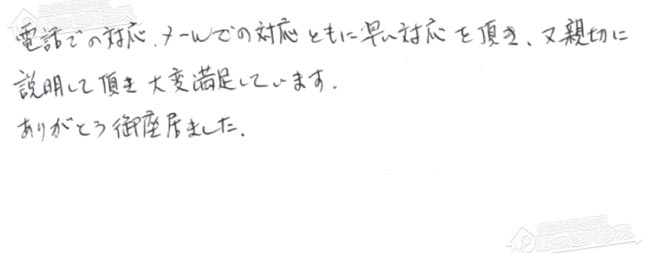 電話での対応、メールでの対応ともに早い対応を頂き、又親切に
説明して頂き大変満足しています。
ありがとう御座居ました。